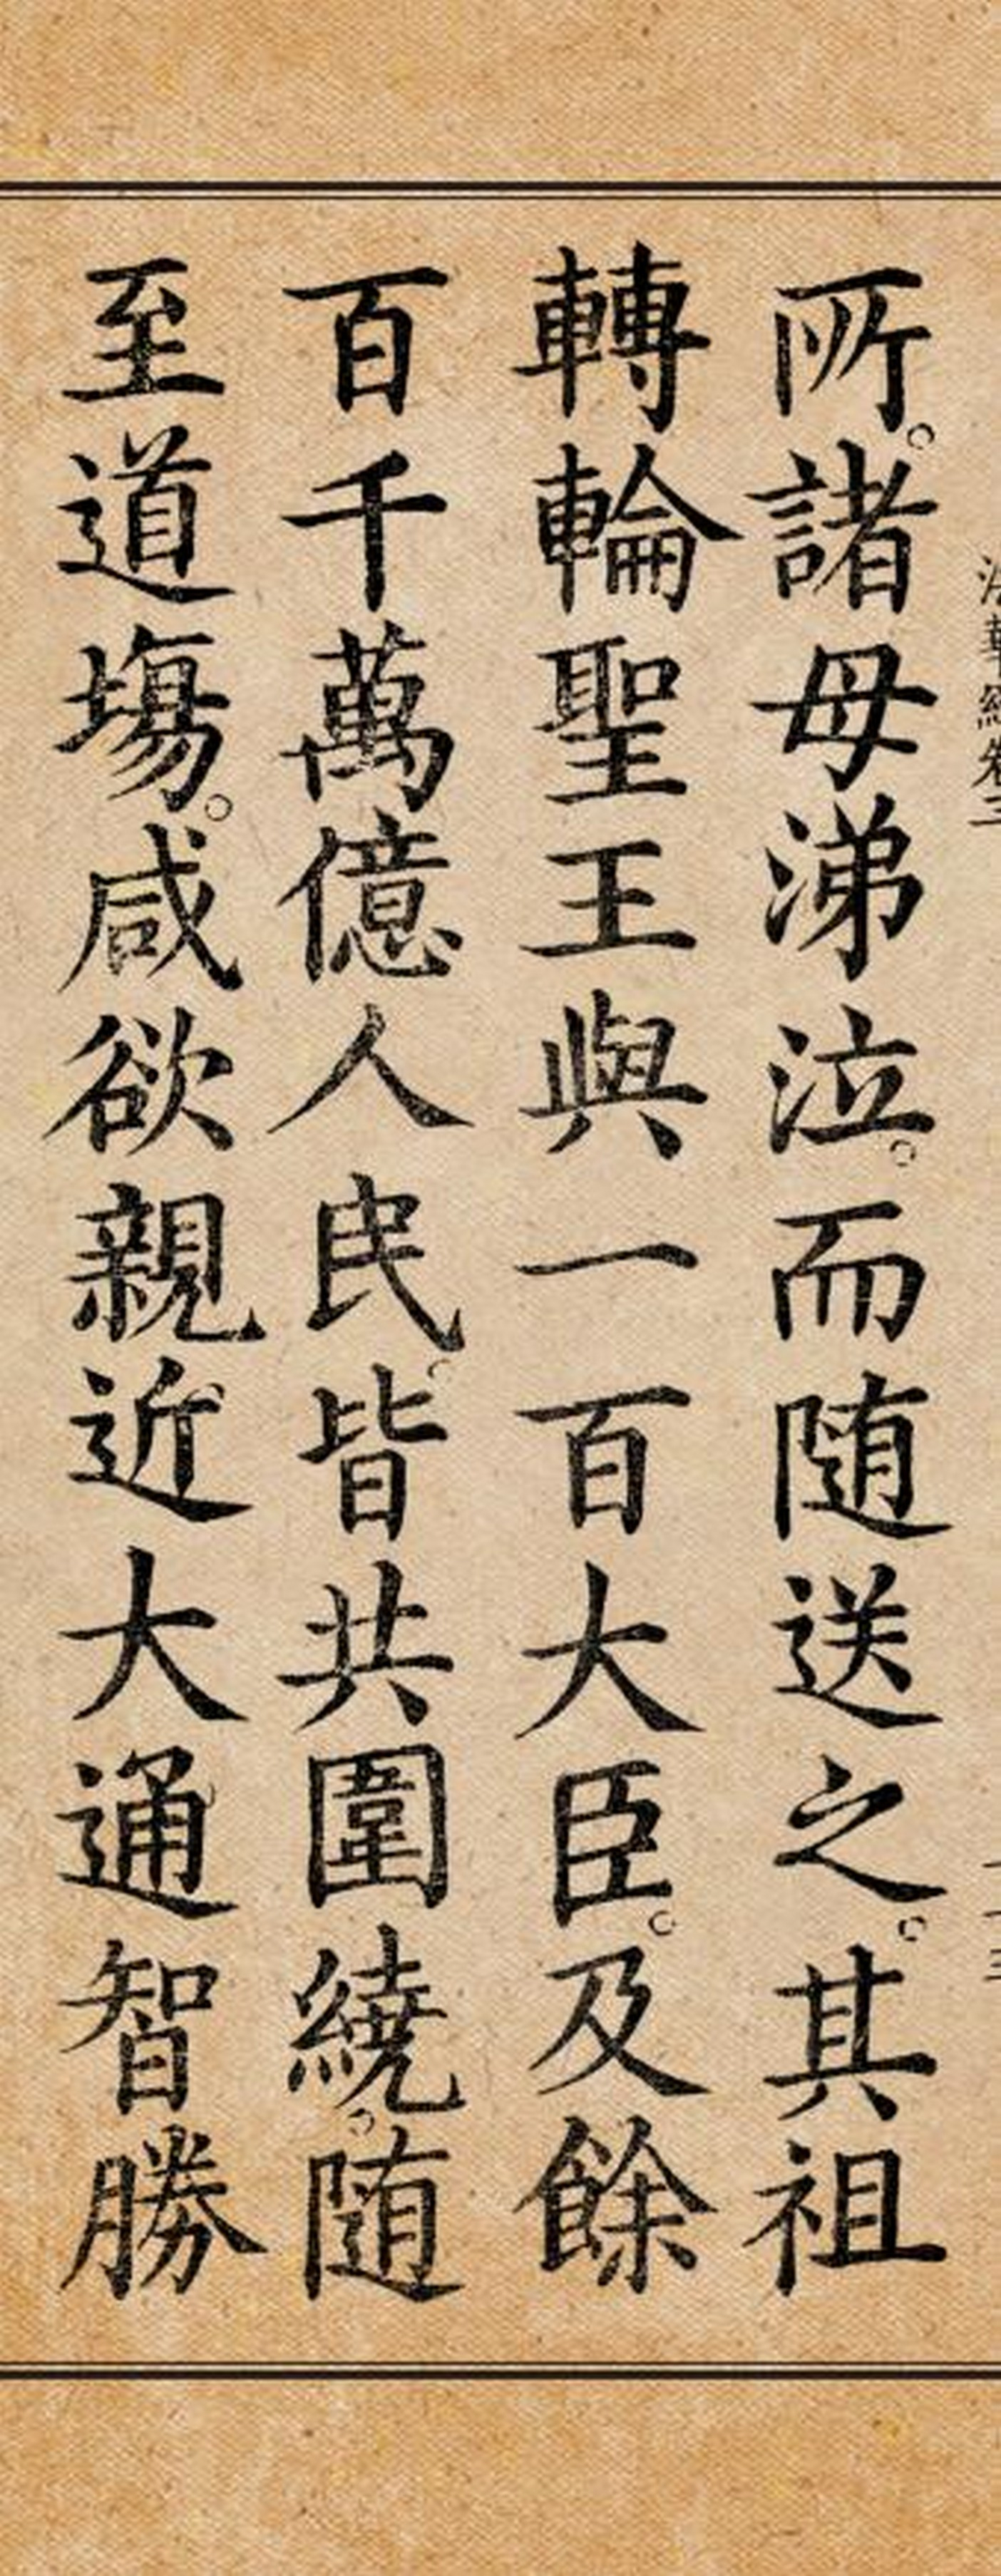 法華經卷三
十三
所。諸母涕泣。而随送之。其祖
轉輪聖王與一百大臣。及餘
百千萬億人民。皆共圍繞。随
至道塲。咸欲親近大通智勝